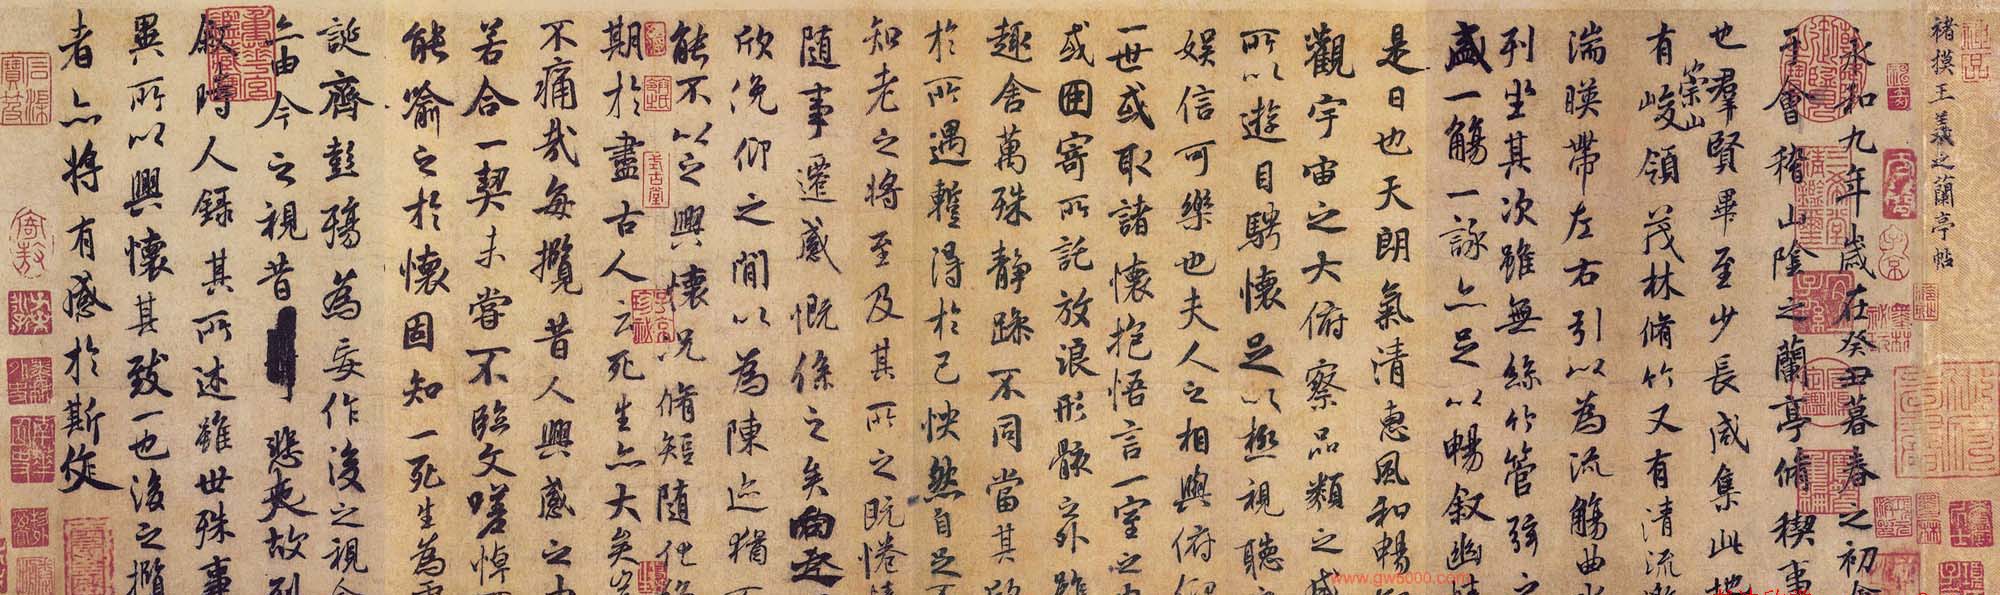 褚摸王羲之蘭亭帖
永和九年歲在癸丑暮春之初會
于會稽山陰之蘭亭脩稧事
也羣賢畢至少長咸集此地
有崇山峻領茂林脩竹又有清流激
湍暎帶左右引以為流觴曲水
列坐其次雖無絲竹管弦之
盛一觴一詠亦足以暢叙幽情
是日也天朗氣清惠風和暢
觀宇宙之大俯察品類之盛
所以遊目騁懷足以極視聽
娛信可樂也夫人之相與俯仰
一世或取諸懷抱悟言一室之
或因寄所託放浪形骸之外雖
趣舍萬殊靜躁不同當其欣
於所遇蹔得於己怏然自足不
知老之將至及其所之既惓情
隨事遷感慨係之矣向之
欣俛仰之間以為陳迹猶不
能不以之興懷況脩短隨化終
期於盡古人云死生亦大矣豈
不痛哉每攬昔人興感之由
若合一契未嘗不臨文嗟悼不
能喻之於懷固知一死生為虛
誕齊彭殤為妄作後之視今
亦由今之視昔悲夫故列
叙時人錄其所述雖世殊事
異所以興懷其致一也後之攬
者亦將有感於斯文
www.gw5000.com